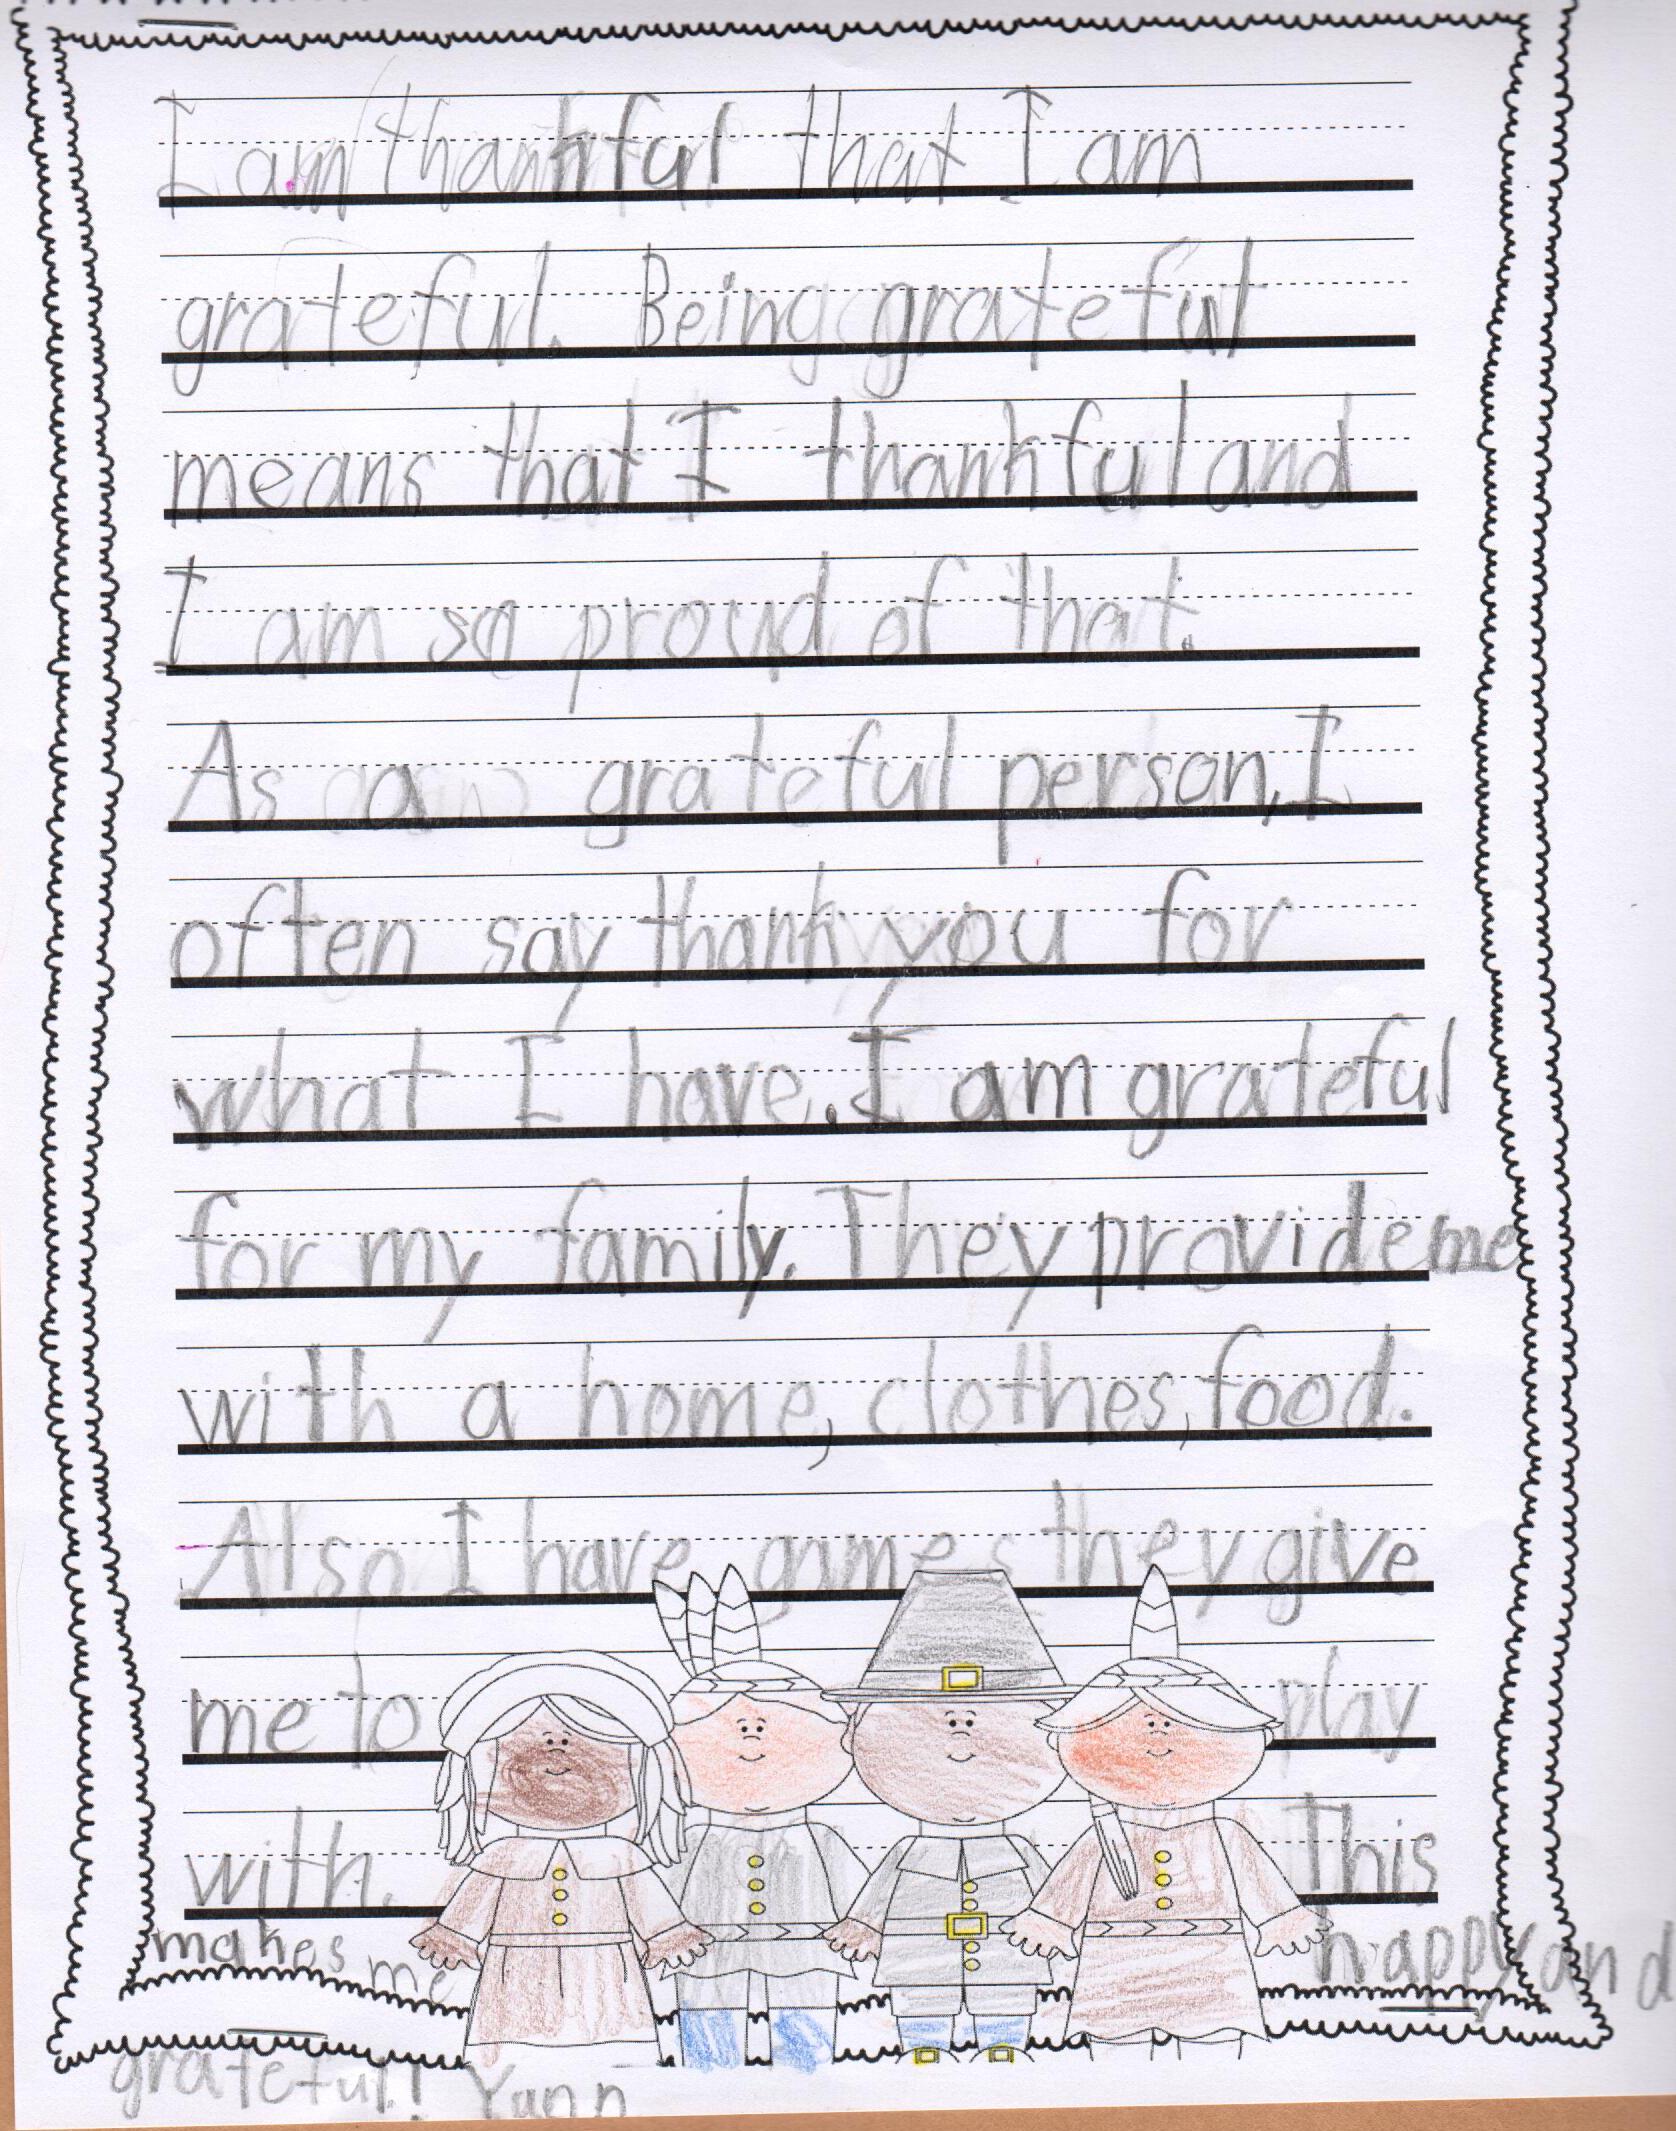 I am thankful that I am
grateful. Being grateful
means that I thankful and
I am so proud of that.
As a grateful person, I
often say thank you for
what I have. I am grateful
for my family. They provide me
with a home, clothes, food.
Also I have games they give
me to play
with. This
makes me happy and
grateful! Yann